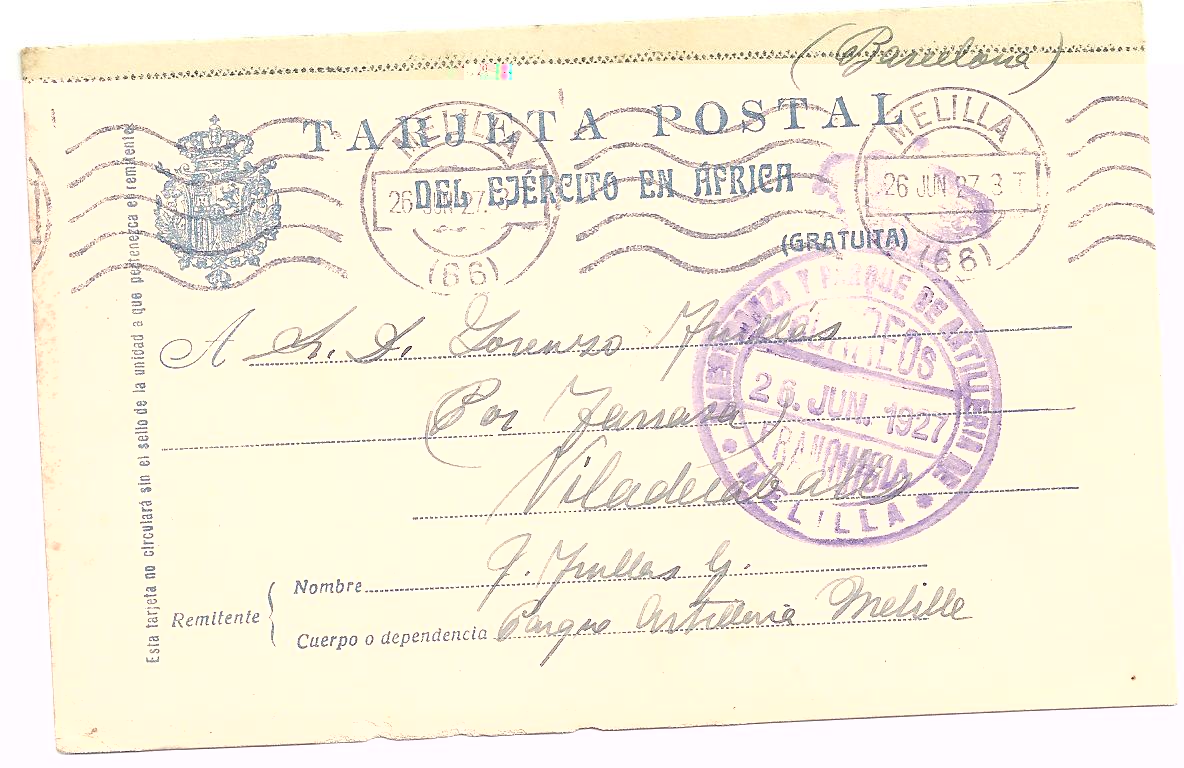 (Barcelona)
TARJETA POSTAL
DEL EJÉRCITO EN ÁFRICA
(GRATUITA)
MELILLA
26 JUN 27.
(66)
MELILLA
26 JUN 27. 3 T
(66)
Esta tarjeta no circulará sin el sello de la unidad a que pertenezca el remitente
A Sr. D. Lorenzo
(Por Tarrasa)
Y PARQUE DE ARTILLERIA DE
CORREOS
26. JUN. 1927
FRANQUICIA
MELILLA
Remitente
Nombre
Cuerpo o dependencia Parque Artilleria Melilla